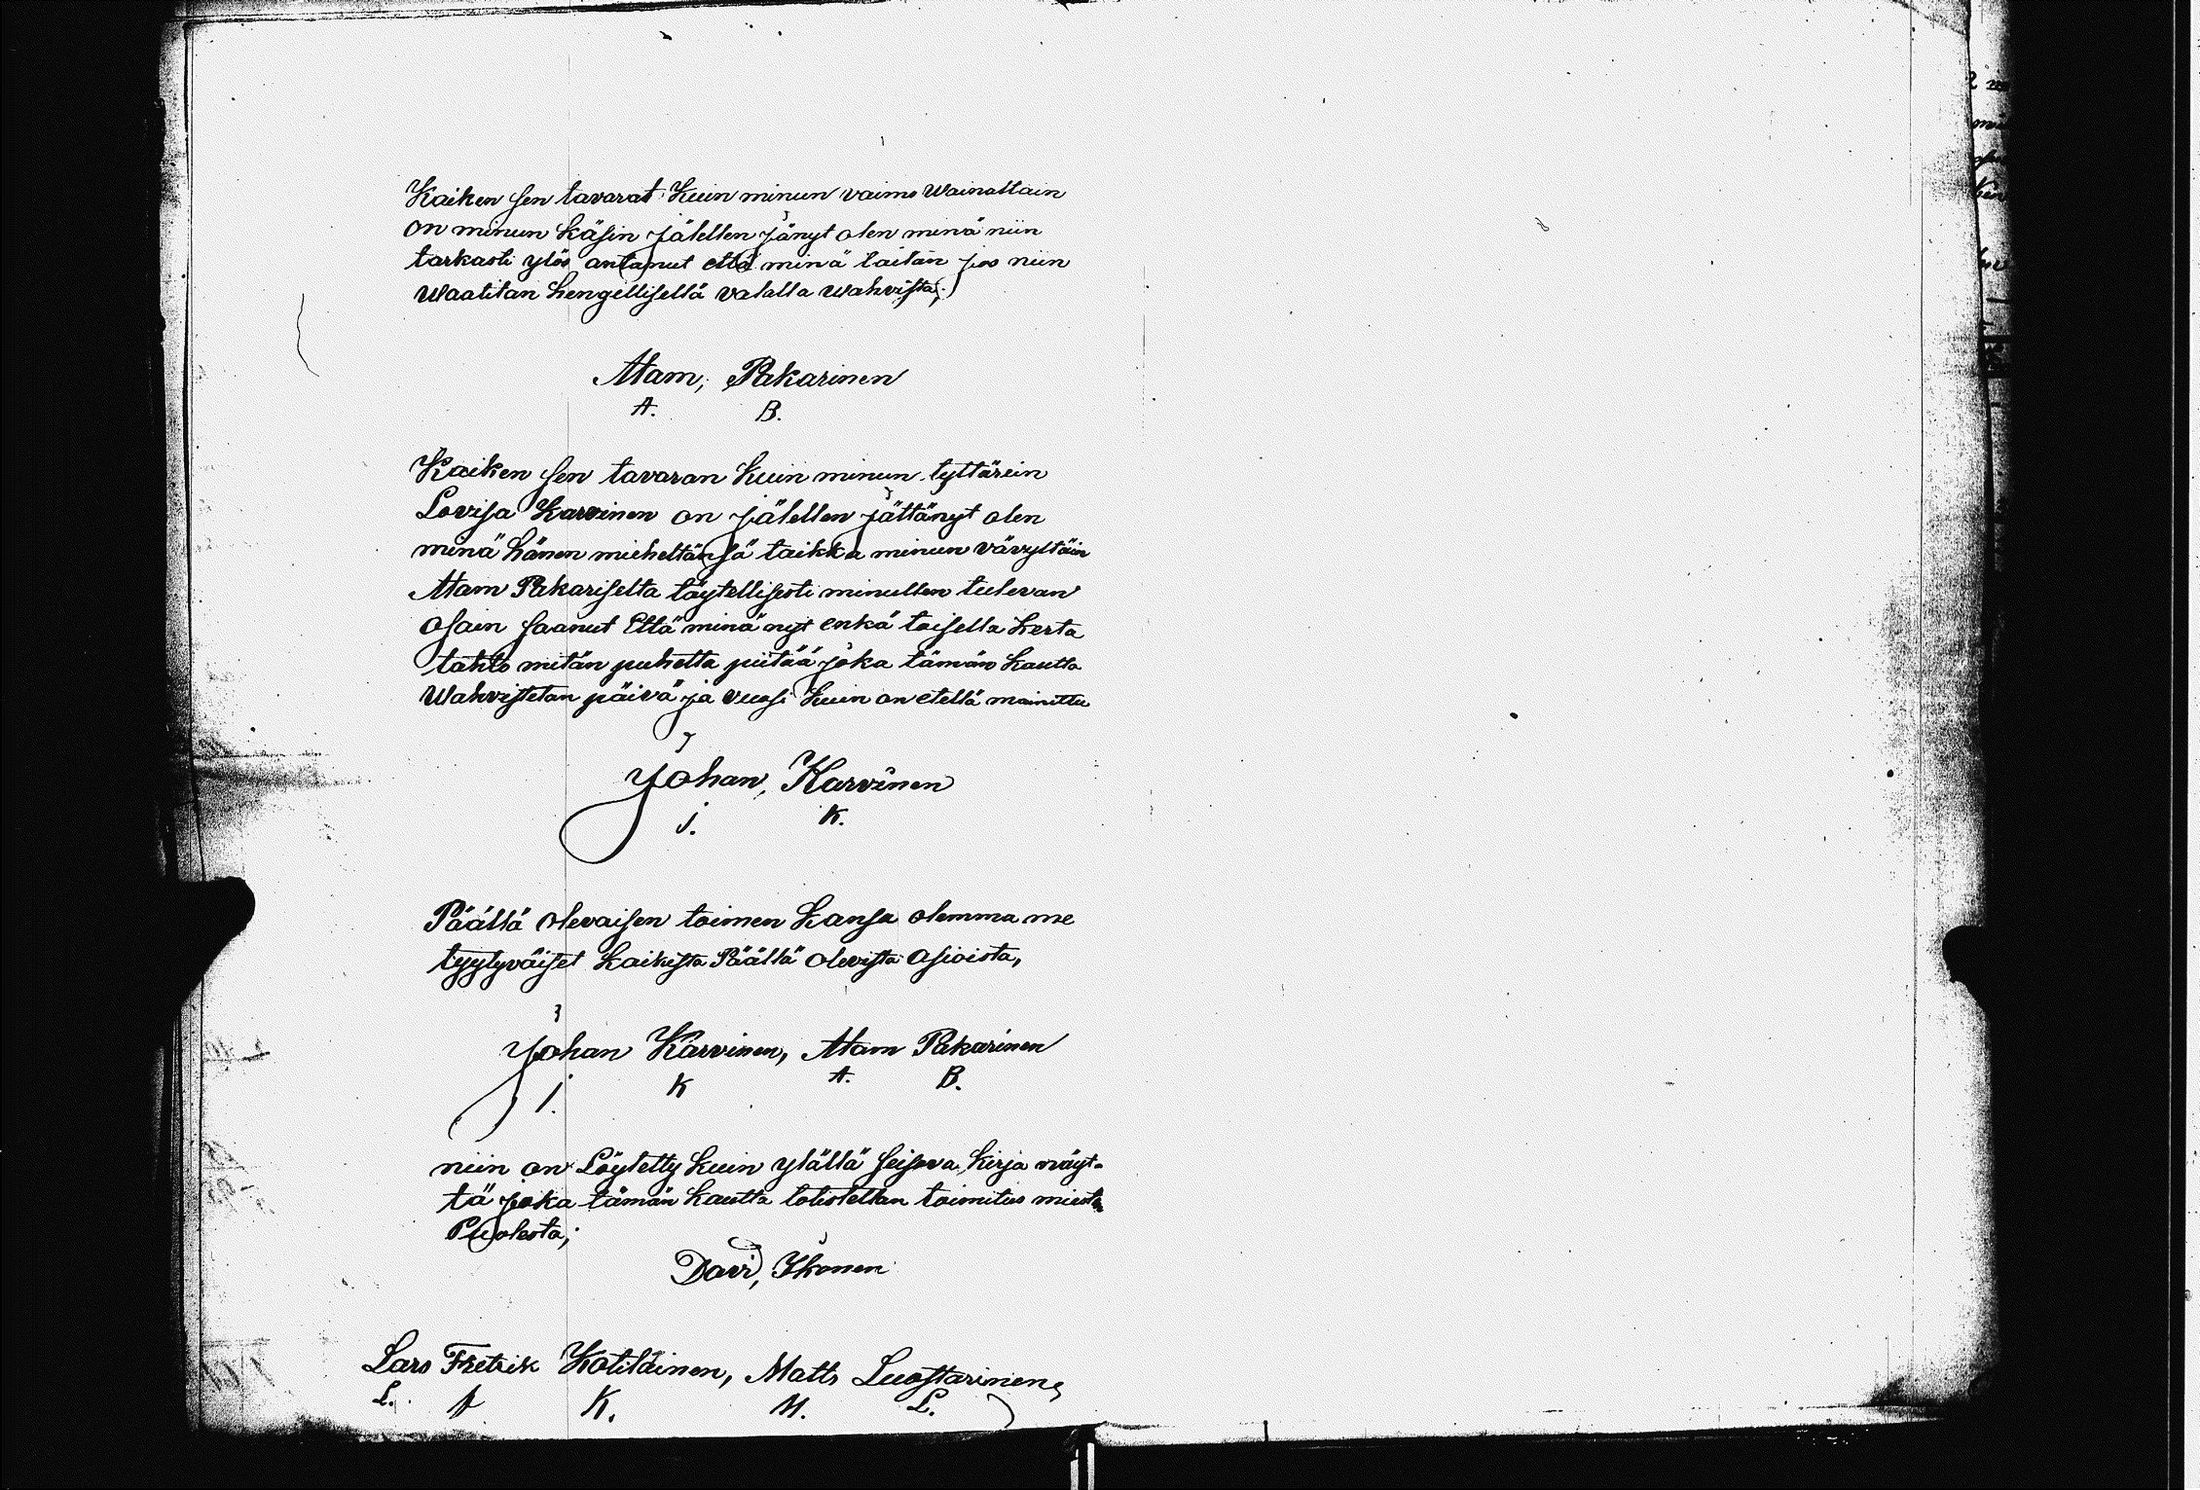 Kaiken sen tavarat kuin minun vaimo Wainattain
on minun käsin jälellen jänyt olen minä niin
tarkasti ylös antanut että minä taitan jos niin
Waatitan hengellisellä valalla wahvista;
Atam, Pakarinen
A. B.
Kaiken sen tavaran kuin minun tyttärein
Lovisa Karvinen on jälellen jättänyt olen
minä hänen mieheltänsä taikka minun vävyltäin
Atam Pakariselta täytellisesti minullen tulevan
osain saanut Että minä nyt enkä toisella kerta
tahto mitän puhetta piitää joka tämän kautta
Wahvistetan päivä ja vuosi kuin on etellä mainittu
Johan, Karvinen
J. K.
Päällä olevaisen toimen kansa olemma me
tyytyväiset kaikista Päällä olevista asioista,
Johan Karvinen, Atam Pakarinen
J. K A. B.
niin on Löytetty kuin ylällä seisova kirja näyt-
tä joka tämän kautta totistettan toimitus miest
Puolesta;
Davi, Ikonen
Lars Fretrik Kotiläinen, Matts Luostarinen,
L. f K. M. L.